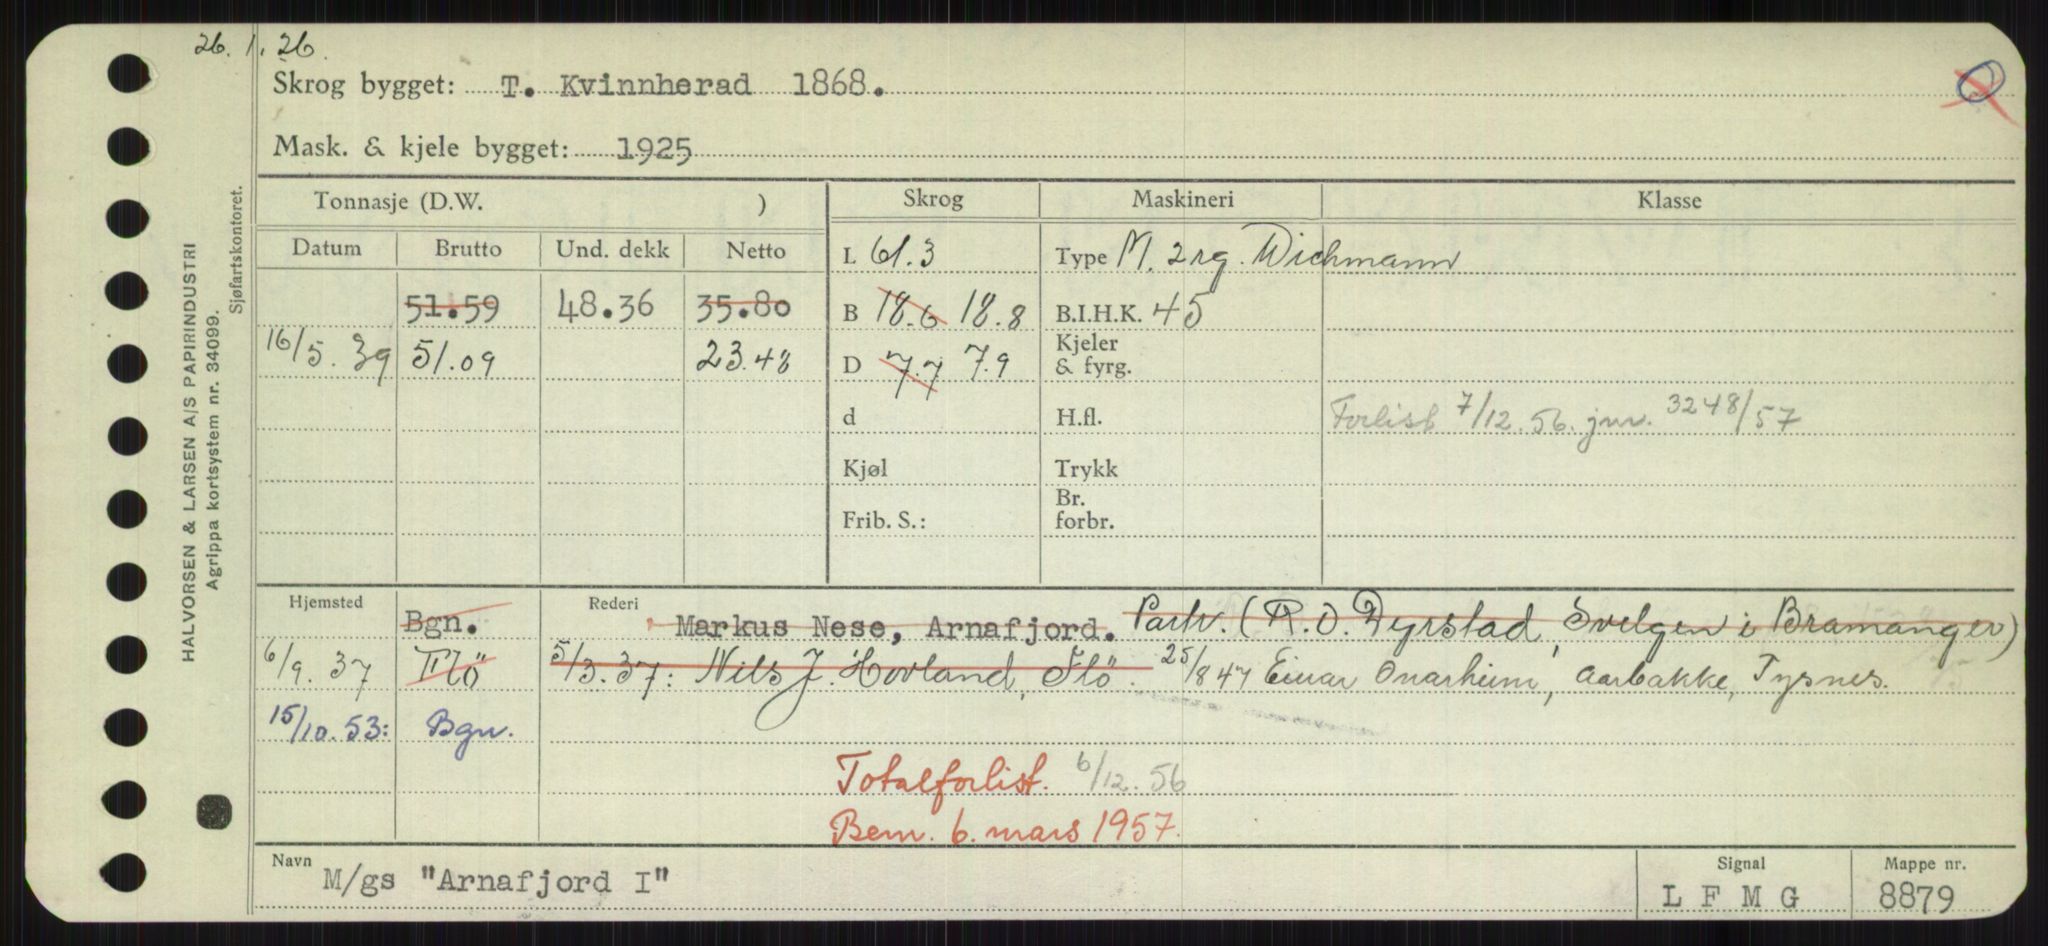 26. 1. 26.
Skrog bygget: T. Kvinnherad 1868.
O
Mask. & kjele bygget: 1925
HALVORSEN & LARSEN A/S PAPIRINDUSTRI
Agrippa kortsystem nr. 34099.
Sjøfartskontoret.
Tonnasje (D.W. ) Skrog Maskineri Klasse
Datum Brutto Und. dekk Netto L 61.3 Type M. 2 rg. Wichmann
51.59 48.36 35.80 B 18.6 18.8 B.I.H.K. 45
16/5. 39 51.09 23.48 D 7.7 7.9 Kjeler & fyrg.
d H.fl. Forlist 7/12. 56. jnr. 3248/57
Kjøl Trykk
Frib. S.: Br. forbr.
Hjemsted Rederi
Bgn. Markus Nese, Arnafjord. Partr. (R. O. Dyrstad, Svelgen i Bremanger)
6/9. 37 Flö 5/3. 37: Nils J. Hovland, Flö. 25/8 47 Einar Onarheim, Aarbakke, Tysnes.
15/10. 53: Bgn.
Totalforlist. 6/12. 56
Bem. 6. mars 1957.
Navn M/gs "Arnafjord I" Signal L F M G Mappe nr. 8879